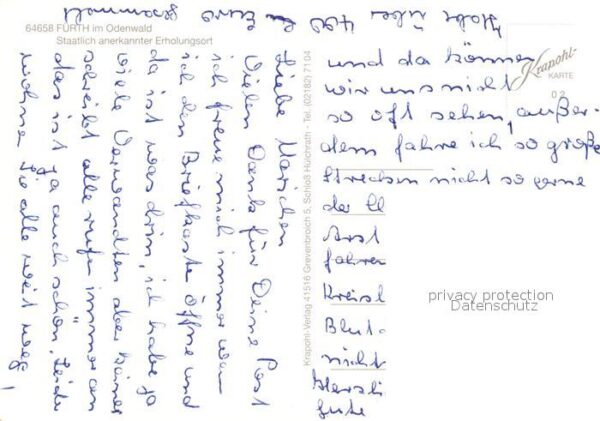 64658 FÜRTH im Odenwald
Staatlich anerkannter Erholungsort
Liebe Marichen
Vielen Dank für Deine Post
ich freue mich immer wenn
ich den Briefkaste öffne und
da ist was drin, ich habe ja
viele Verwandten aber keiner
schreibt alle rufen immer an
das ist ja auch schön. Leider
wohnen Sie alle weit weg!
und da können
wir uns nicht
so oft sehen, außer-
dem fahre ich so große
Strecken nicht so gerne
der
Arzt
fahren
Kreisl
Blut-
nicht
Herzli
gute
Habe über 400 Euro
gesammelt
Krapohl-Verlag 41516 Grevenbroich 5, Schloß Hülchrath · Tel. (02182) 7104
Krapohl-
KARTE
02
privacy protection
Datenschutz